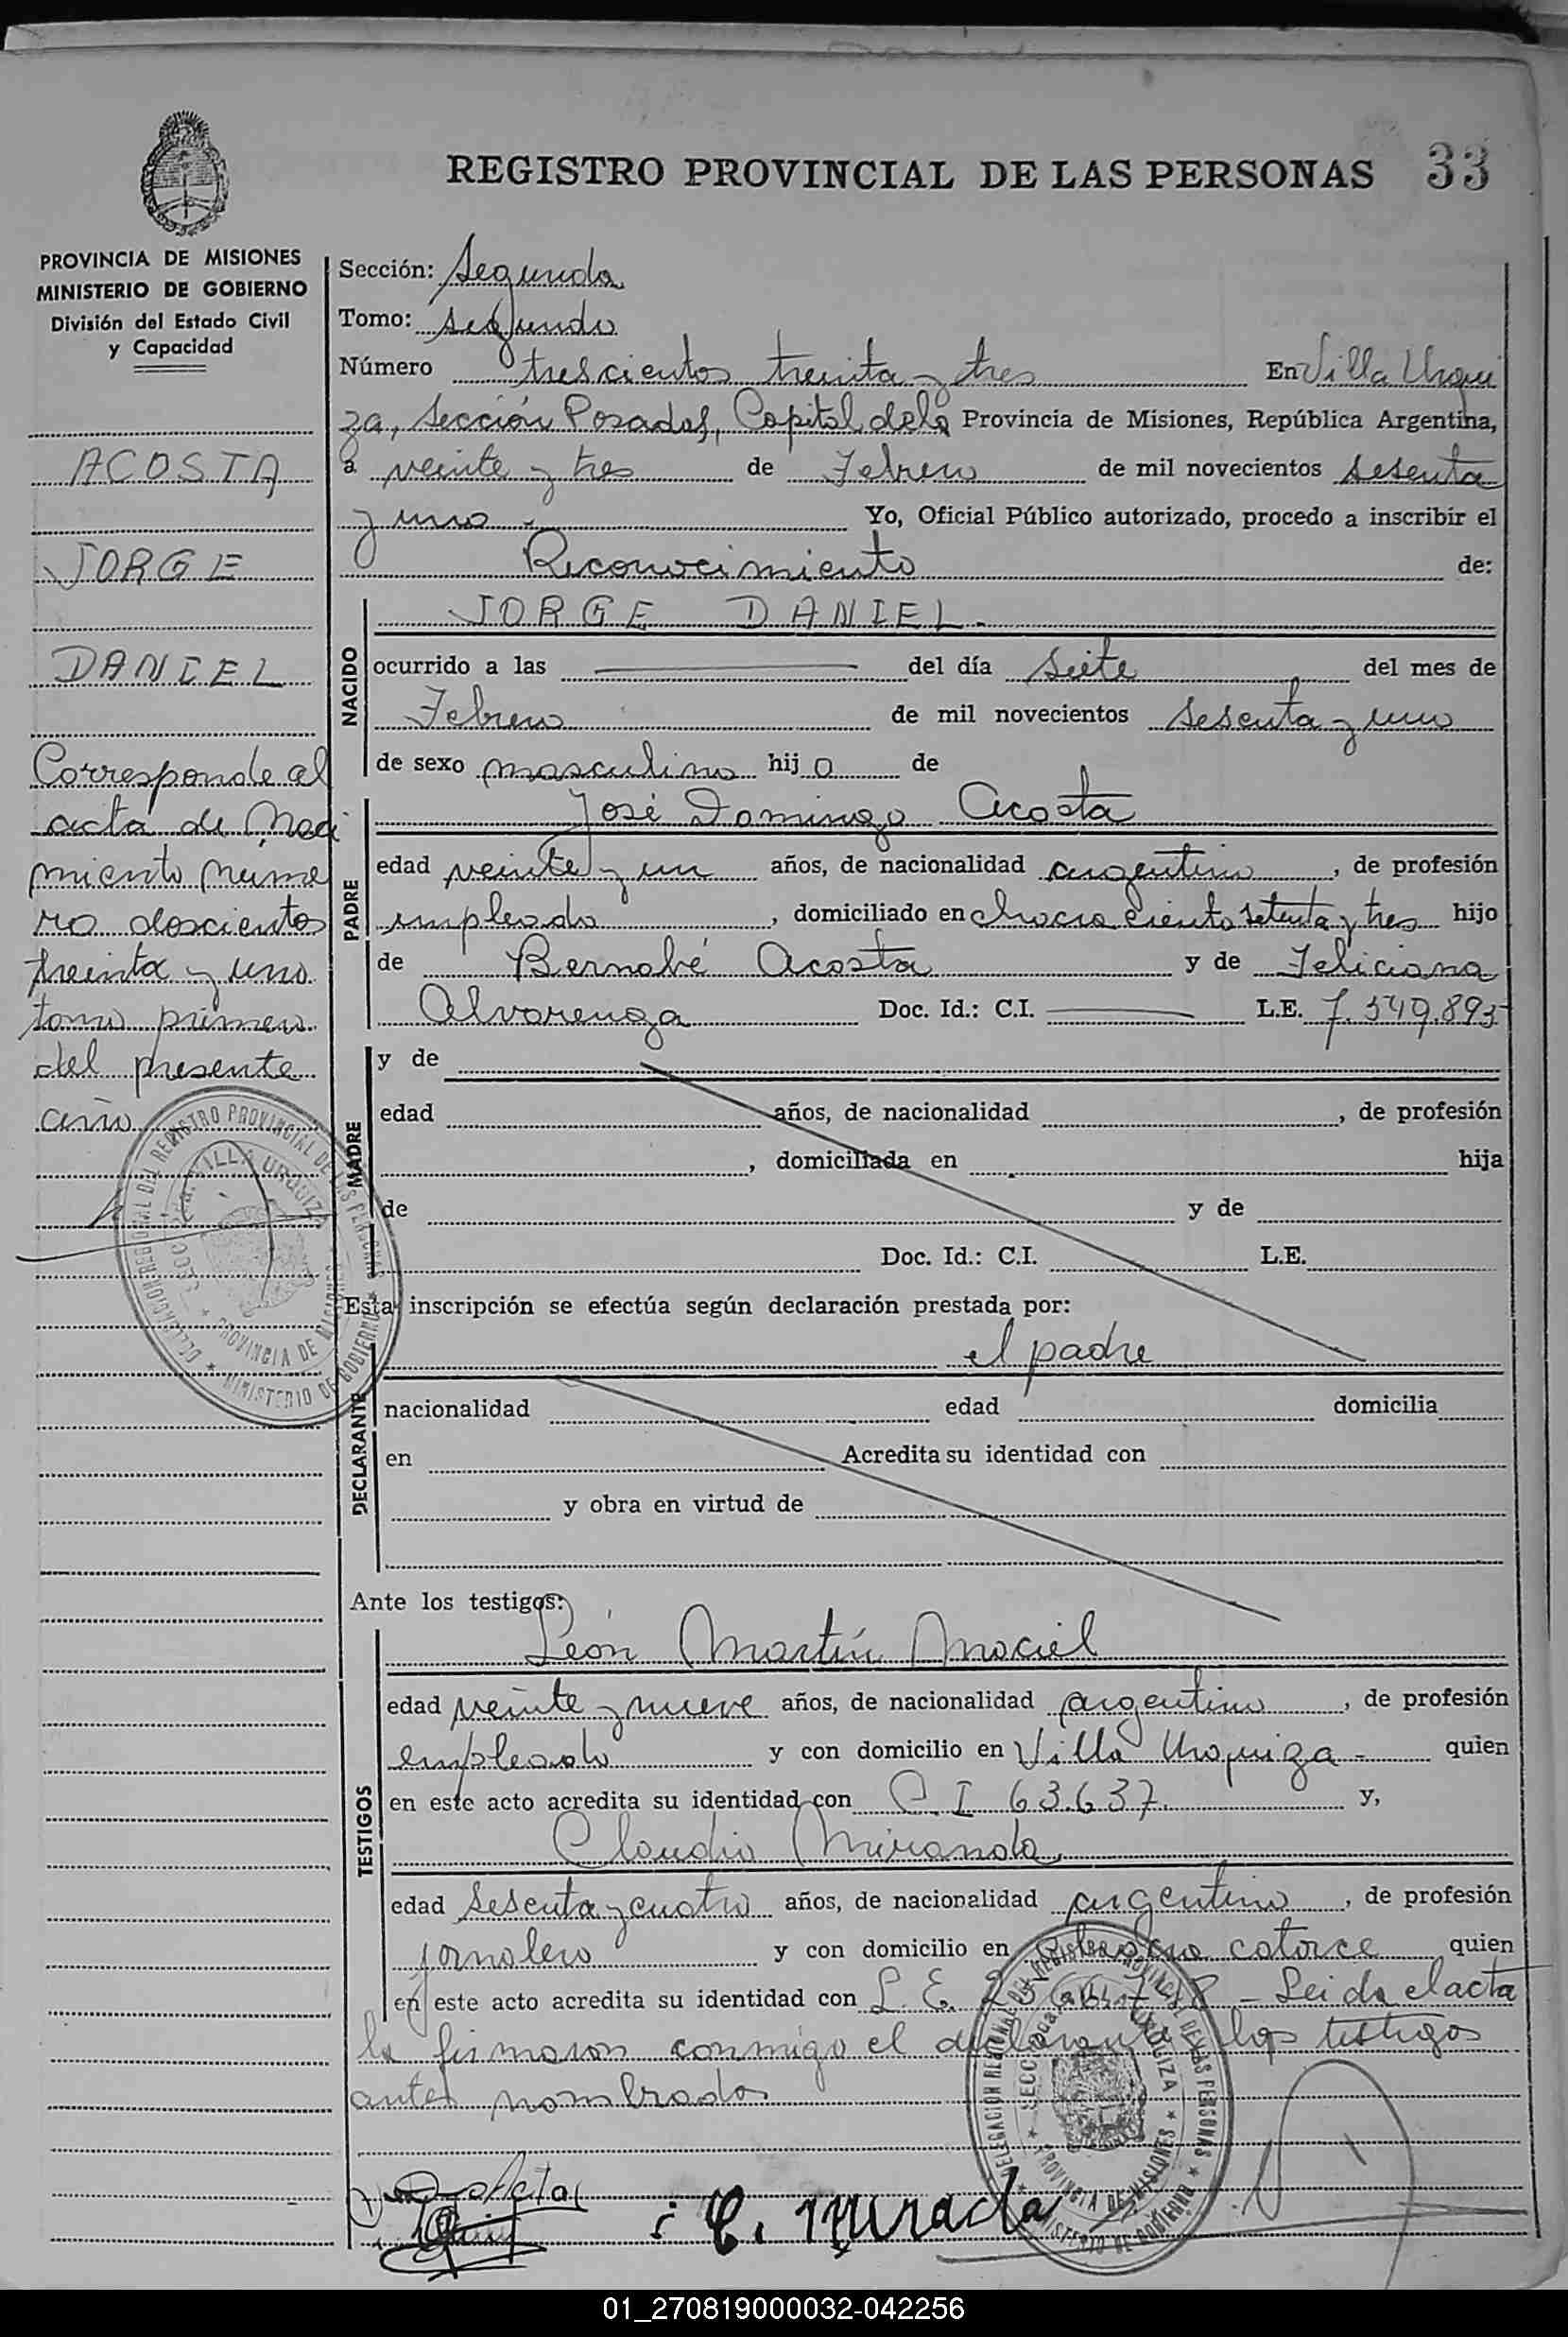 REGISTRO PROVINCIAL DE LAS PERSONAS 33
PROVINCIA DE MISIONES
MINISTERIO DE GOBIERNO
División del Estado Civil
y Capacidad
ACOSTA
JORGE
DANIEL
Corresponde al
acta de Naci
miento núme
ro doscientos
treinta y uno
tomo primero
del presente
año
Sección: Segunda
Tomo: segundo
Número trescientos treinta y tres En Villa Urqui
za, Sección Posadas, Capital de la Provincia de Misiones, República Argentina,
a veinte y tres de Febrero de mil novecientos sesenta
y uno. Yo, Oficial Público autorizado, procedo a inscribir el
Reconocimiento de:
NACIDO
JORGE DANIEL.
ocurrido a las del día siete del mes de
Febrero de mil novecientos sesenta y uno
de sexo masculino hijo de
PADRE
José Domingo Acosta
edad veinte y un años, de nacionalidad argentino, de profesión
empleado, domiciliado en chacra ciento setenta y tres hijo
de Bernabé Acosta y de Feliciana
Alvarenga Doc. Id.: C.I. L.E. 7.549.893
MADRE
y de
edad años, de nacionalidad , de profesión
, domiciliada en hija
de y de
Doc. Id.: C.I. L.E.
Esta inscripción se efectúa según declaración prestada por:
el padre
DECLARANTE
nacionalidad edad domicilia
en Acredita su identidad con
y obra en virtud de
Ante los testigos:
TESTIGOS
León Martín Maciel
edad veinte y nueve años, de nacionalidad argentino, de profesión
empleado y con domicilio en Villa Urquiza - quien
en este acto acredita su identidad con C.I 63.637. y,
Claudio Miranda
edad sesenta y cuatro años, de nacionalidad argentino, de profesión
jornalero y con domicilio en chacra catorce quien
en este acto acredita su identidad con L.E. - Leida el acta
la firmaron conmigo el declarante y los testigos
antes nombrados
C. Mirada
DELEGACION REGIONAL DEL REGISTRO PROVINCIAL DE LAS PERSONAS
SECC. 2da. VILLA URQUIZA
PROVINCIA DE MISIONES
MINISTERIO DE GOBIERNO
DELEGACION REGIONAL DEL REGISTRO PROVINCIAL DE LAS PERSONAS
SECC. 2da. VILLA URQUIZA
PROVINCIA DE MISIONES
MINISTERIO DE GOBIERNO
01_270819000032-042256